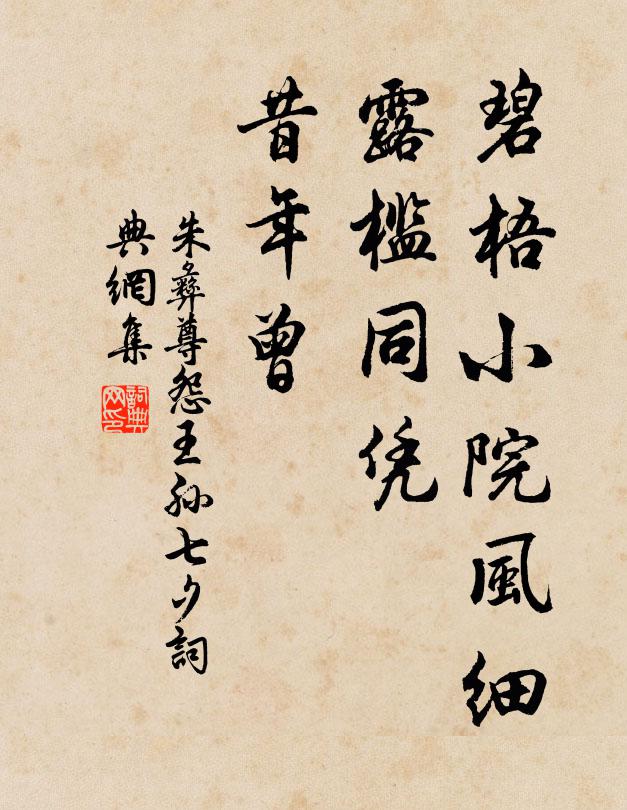 碧梧小院風細
露檻同凭
昔年曾
朱彝尊怨王孙七夕詞
典網集
詞典
网印